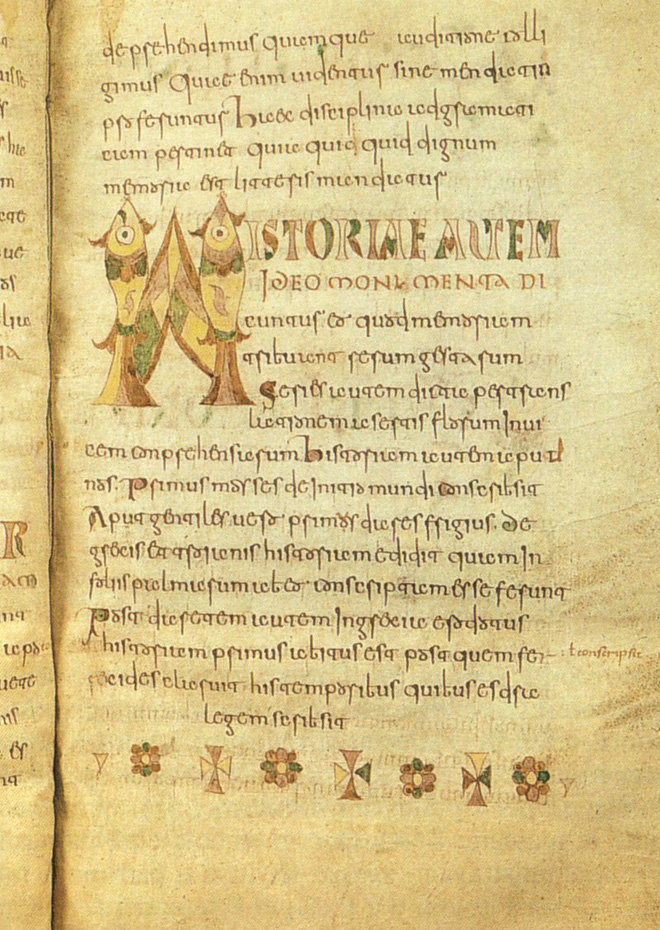 deprehendimus quamque auditione colli
gimus Quae enim uidentur sine mendatio
proferuntur Haec disciplina adgramati
cam pertinet quia quid quid dignum
memoria est litteris mandatur
HISTORIAE AUTEM
IDEO MONIMENTA DI
cuntur eo quod memoriam
tribuant rerum gestarum
Series autem dicta pertrans
lationem asertis florum Inui
cem conprehensarum historiam autem aput
nos. Primus moses de Initio mundi conscribsit
Aput gentiles. uero primos dares ffrigius. De
grecis et troianis historiam edidit quam In
foliis palmarum ab eo conscriptam esse ferunt
Post daretem autem Ingrecia erodotus
historiam primus abitus est post quem fer
ecides claruit his temporibus quibus esdra
legem scribsit